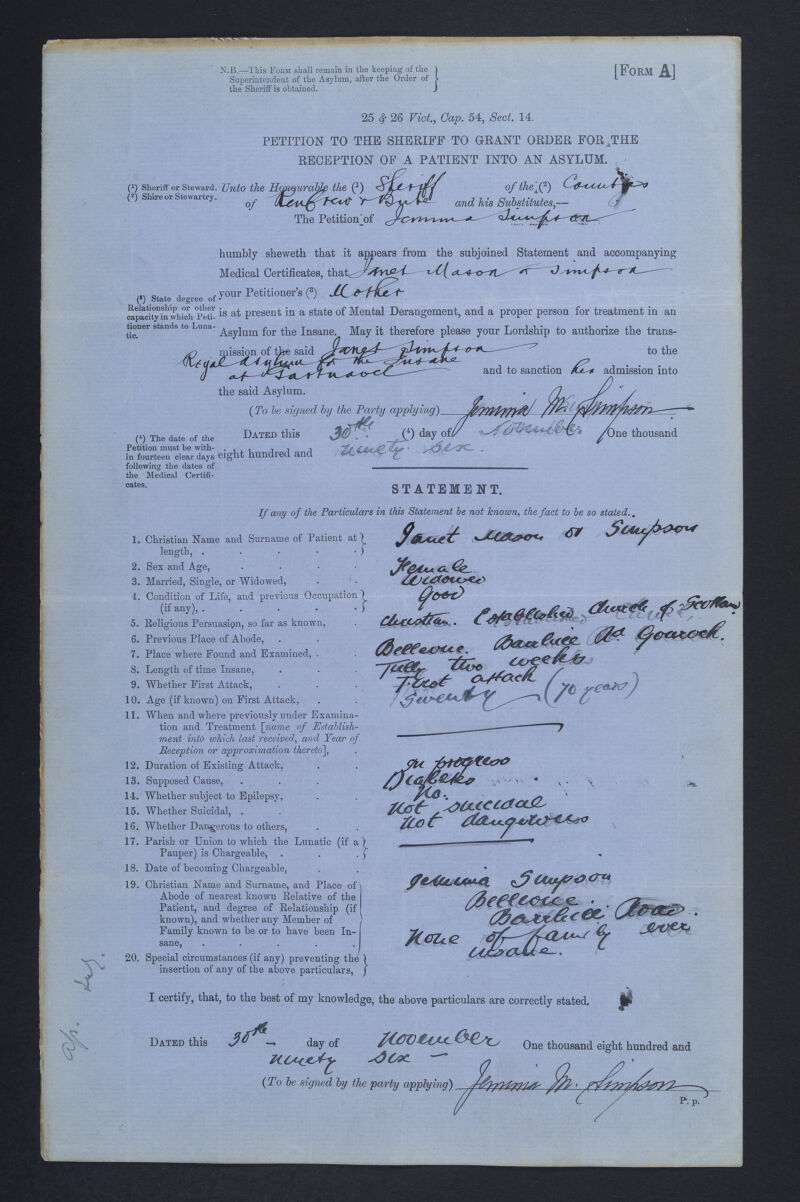 N.B.—This Form shall remain in the keeping of the
Superintendent of the Asylum, after the Order of
the Sheriff is obtained.
[Form A]
25 & 26 Vict., Cap. 54, Sect. 14.
PETITION TO THE SHERIFF TO GRANT ORDER FOR THE
RECEPTION OF A PATIENT INTO AN ASYLUM.
(¹) Sheriff or Steward.
(²) Shire or Stewartry.
Unto the Honourable the (¹) Sheriff of the (²) Counties
of Renfrew & Bute and his Substitutes,—
The Petition of Jemima Simpson
humbly sheweth that it appears from the subjoined Statement and accompanying
Medical Certificates, that Janet Mason or Simpson
your Petitioner's (³) Mother
(³) State degree of
Relationship or other
capacity in which Peti-
tioner stands to Luna-
tic.
is at present in a state of Mental Derangement, and a proper person for treatment in an
Asylum for the Insane. May it therefore please your Lordship to authorize the trans-
mission of the said Janet Simpson to the
Royal Asylum for the Insane
at Gartnavel and to sanction her admission into
the said Asylum.
(To be signed by the Party applying) Jemima M. Simpson
(⁴) The date of the
Petition must be with-
in fourteen clear days
following the dates of
the Medical Certifi-
cates.
Dated this 30th (⁴) day of November One thousand
eight hundred and ninety six.
STATEMENT.
If any of the Particulars in this Statement be not known, the fact to be so stated.
1. Christian Name and Surname of Patient at
length, . . . . . Janet Mason or Simpson
2. Sex and Age, . . . . Female
3. Married, Single, or Widowed, . . Widowed
4. Condition of Life, and previous Occupation
(if any), . . . . . . Good
5. Religious Persuasion, so far as known, . Christian. Established Church of Scotland
6. Previous Place of Abode, . .
7. Place where Found and Examined, . . Bellevue. Barrhill Rd Gourock.
8. Length of time Insane, . . . Fully two weeks
9. Whether First Attack, . . . First attack
10. Age (if known) on First Attack, . . Seventy (70 years)
11. When and where previously under Examina-
tion and Treatment [name of Establish-
ment into which last received, and Year of
Reception or approximation thereto], .
12. Duration of Existing Attack, . . In progress
13. Supposed Cause, . . . . Diabetes
14. Whether subject to Epilepsy, . . No.
15. Whether Suicidal, . . . . Not suicidal
16. Whether Dangerous to others, . . Not dangerous
17. Parish or Union to which the Lunatic (if a
Pauper) is Chargeable, . . .
18. Date of becoming Chargeable, . .
19. Christian Name and Surname, and Place of
Abode of nearest known Relative of the
Patient, and degree of Relationship (if
known), and whether any Member of
Family known to be or to have been In-
sane, . . . . . .
Jemima Simpson
Bellevue.
Barrhill Road.
None of family ever
insane.
20. Special circumstances (if any) preventing the
insertion of any of the above particulars,
I certify, that, to the best of my knowledge, the above particulars are correctly stated.
Dated this 30th day of November One thousand eight hundred and
ninety six
(To be signed by the party applying) Jemima M. Simpson
P. p.